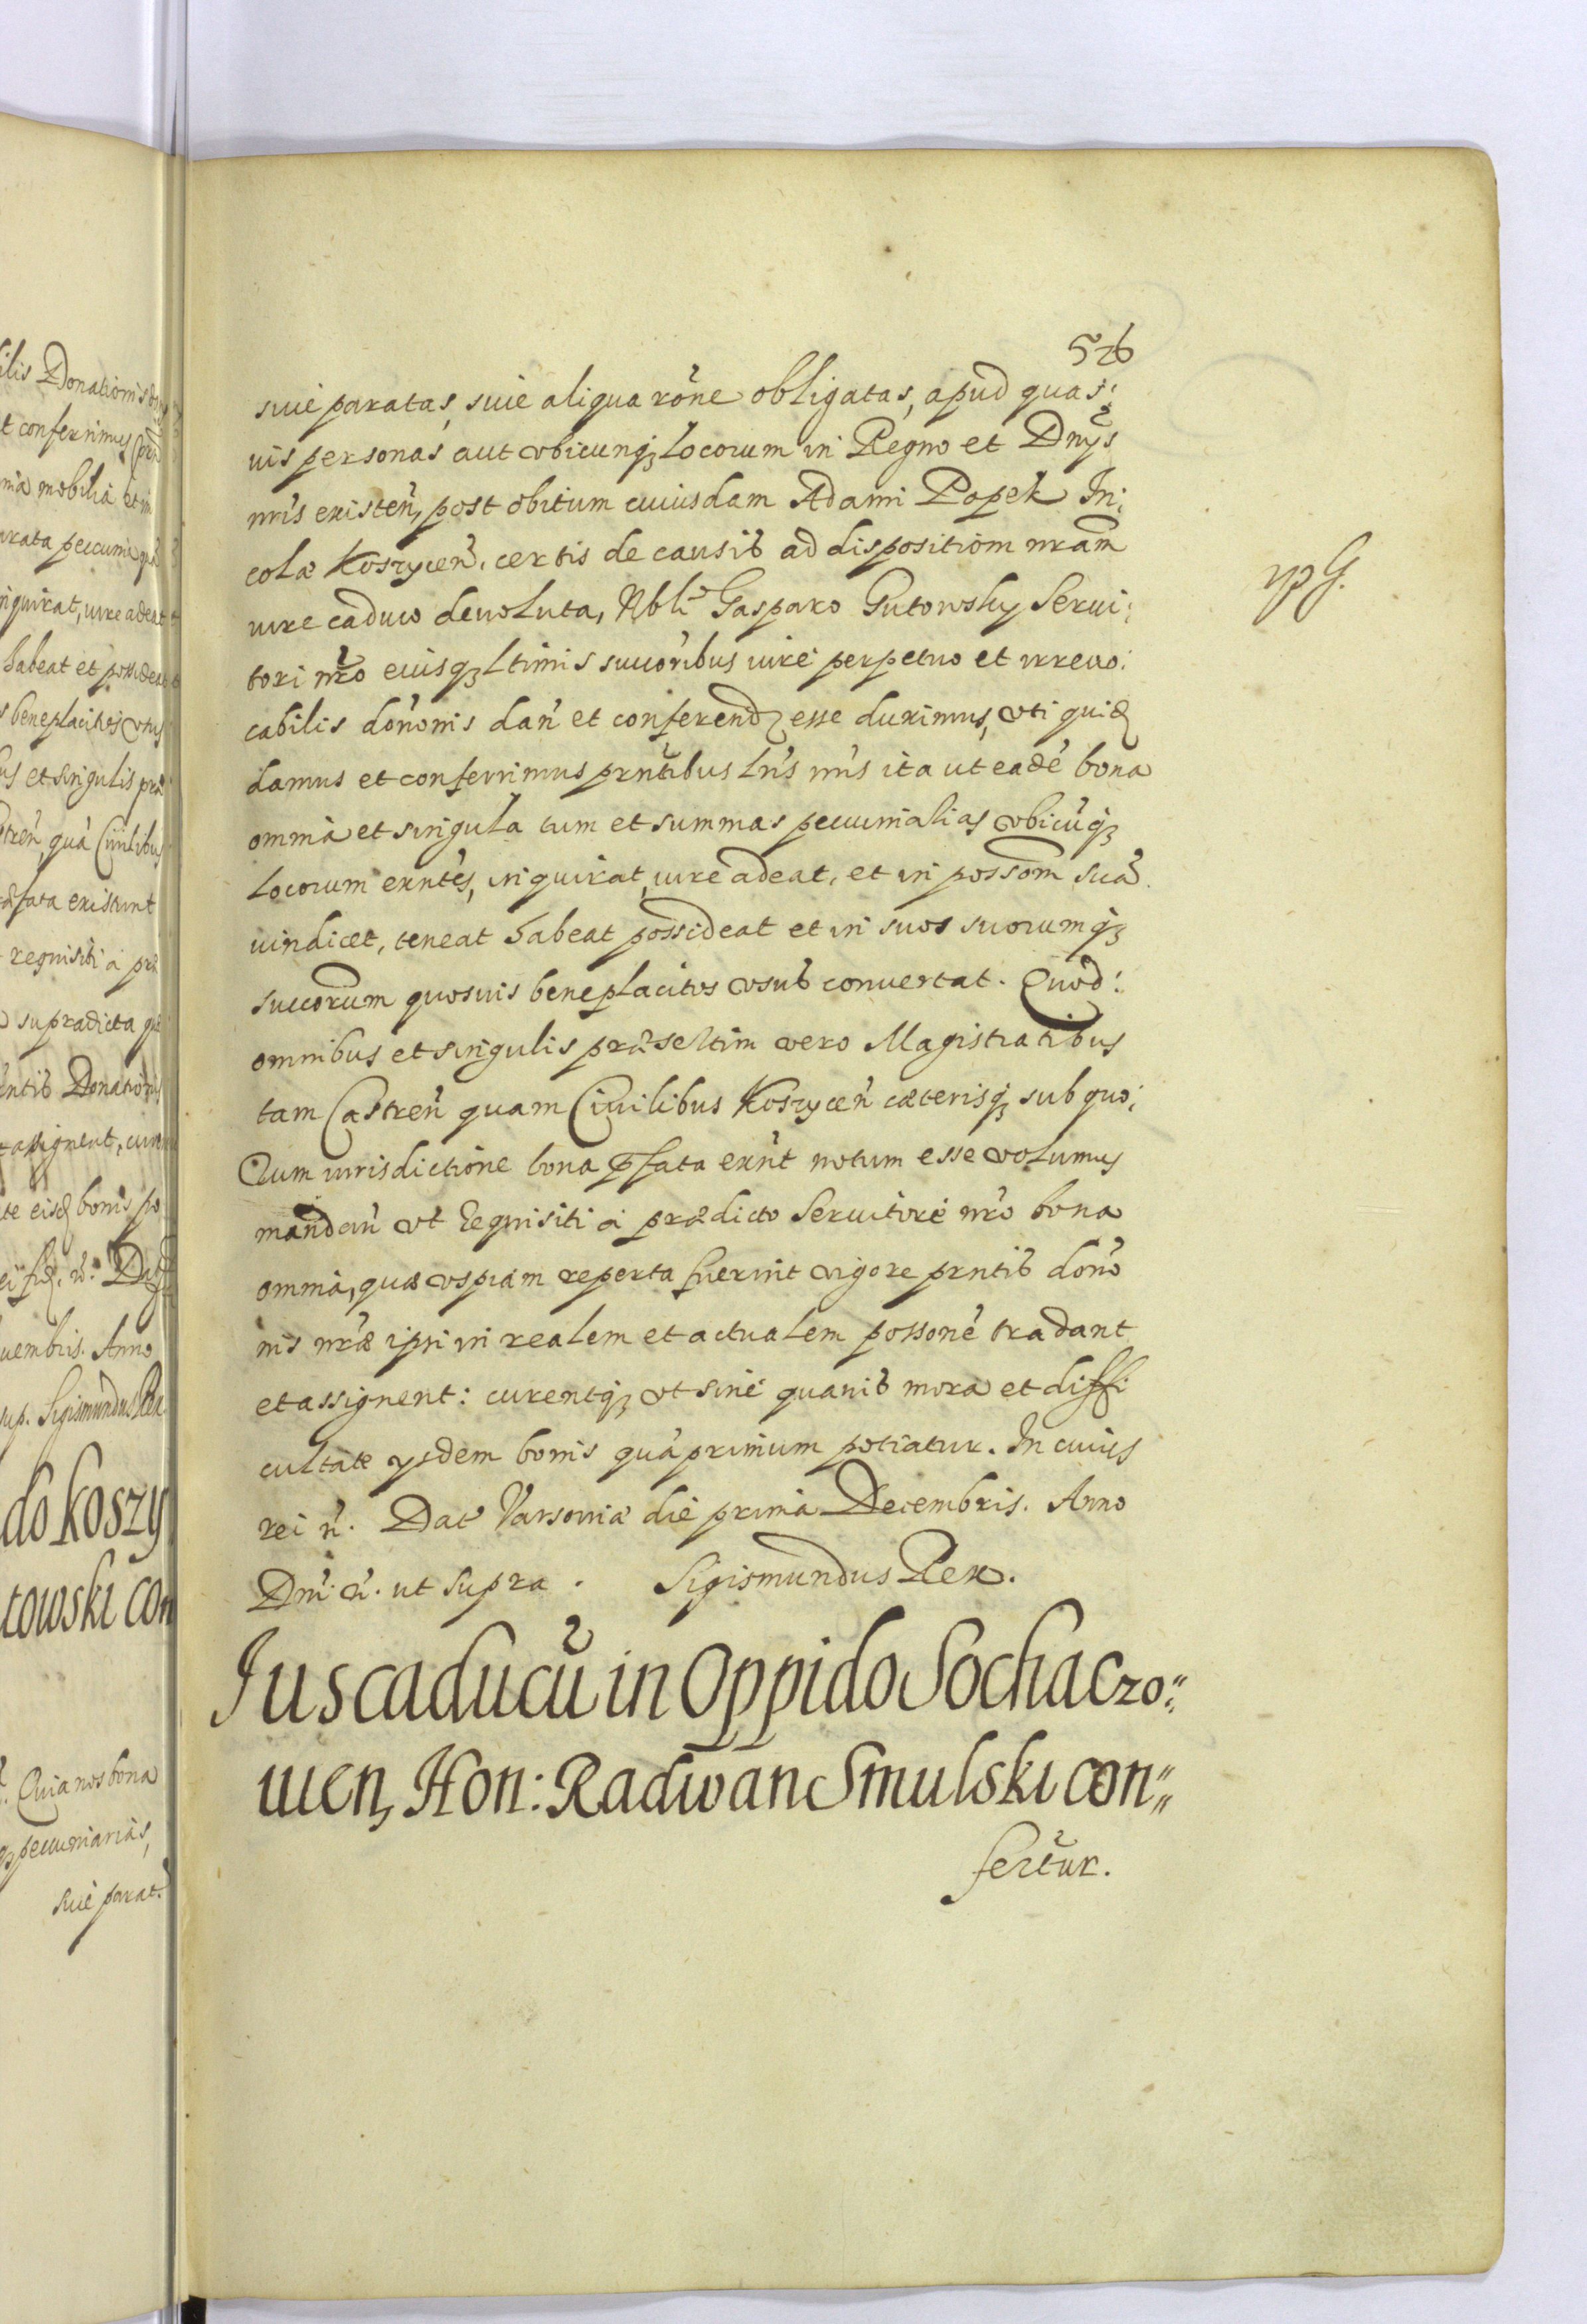 526
siue paratas, siue aliqua rōne obligatas, apud quas:
uis personas aut vbicunqꝫ locorum in Regno et Dnÿs
nris existeñ, post obitum cuiusdam Adami Papek In:
colæ Koszyceñ. certis de causis ad dispositiom nram
iure caduco deuoluta, Nbli Gasparo Gutowsky Serui:
tori nr̃o eiusqꝫ ltimis succoribus iure perpetuo et irreuo:
cabilis dononis dañ et conferend esse duximus, vti quid
damus et conferimus prñtibus lrĩs nrĩs ita ut eadē bona
omnia et singula tum et summas pecuniarias vbicūqꝫ
locorum exntes, inquirat, iure adeat, et in possom suā
uindicet, teneat habeat possideat et in suos suorumqꝫ
succorum quosuis beneplacitos vsus conuertat. Quod:
omnibus et singulis præsertim vero Magistratibus
tam Castreñ quam Ciuilibus Koszyceñ cæterisqꝫ sub quo:
rum iurisdictione bona p̄fata exñt notum esse volumus
mandañ vt requisiti à prædicto Seruitore nr̃o bona
omnia, quæ vspiam reperta fuerint vigore prntis donō
nis nr̃æ ipsi in realem et actualem possonē tradant
et assignent: curentqꝫ vt sine quauis mora et diffi
cultate ysdem bonis quā primum potiatur. In cuius
rei ñ. Dat Varsouiæ die prima Decembris. Anno
Dm̃i ñ. ut supra. Sigismundus Rex.
Ius caducū in Oppido Sochaczo:
uien, Hon: Radwan Smulski con:
fertur.
ilis Donationis
t conferimus
nia mobilia et
arata pecunia
nquirat, iure adeat
habeat et possideat
s beneplacitos vsus
us et singulis præ
streñ, quā Ciuilibus
æfata existunt
requisiti à præ
supradicta
entis Donationis
t assignent,
te eisd bonis
Dat
uembris. Anno
sup. Sigismundus Rex
do Koszy
towski con
Quia nos bona
pecuniarias,
siue parat.